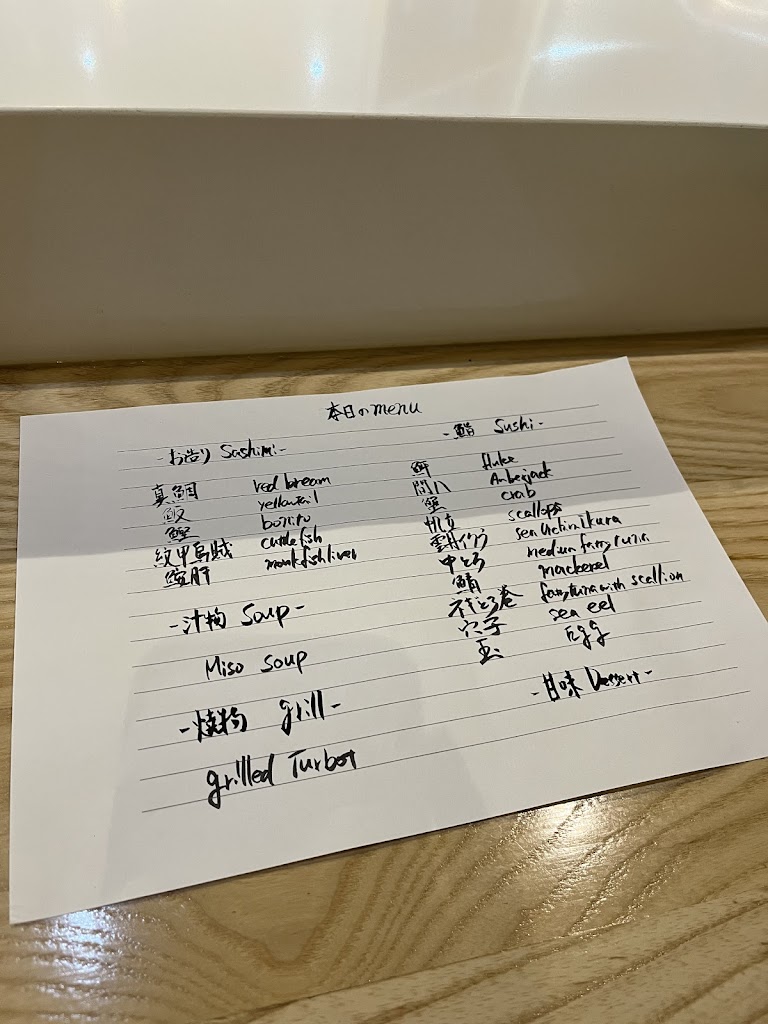 本日のmenu
-お造り Sashimi-
真鯛 red bream
yellowtail
鰹 bonito
紋甲烏賊 cuttle fish
鮟肝 monkfish liver
-汁物 Soup-
Miso Soup
-焼物 grill-
grilled Turbot
-鮨 Sushi-
fluke
間八 Amberjack
蟹 crab
帆立 scallops
雲丹イクラ sea urchin ikura
中とろ medium fatty tuna
鯖 mackerel
ネギとろ巻 fatty tuna with scallion
穴子 sea eel
玉 Egg
-甘味 Dessert-